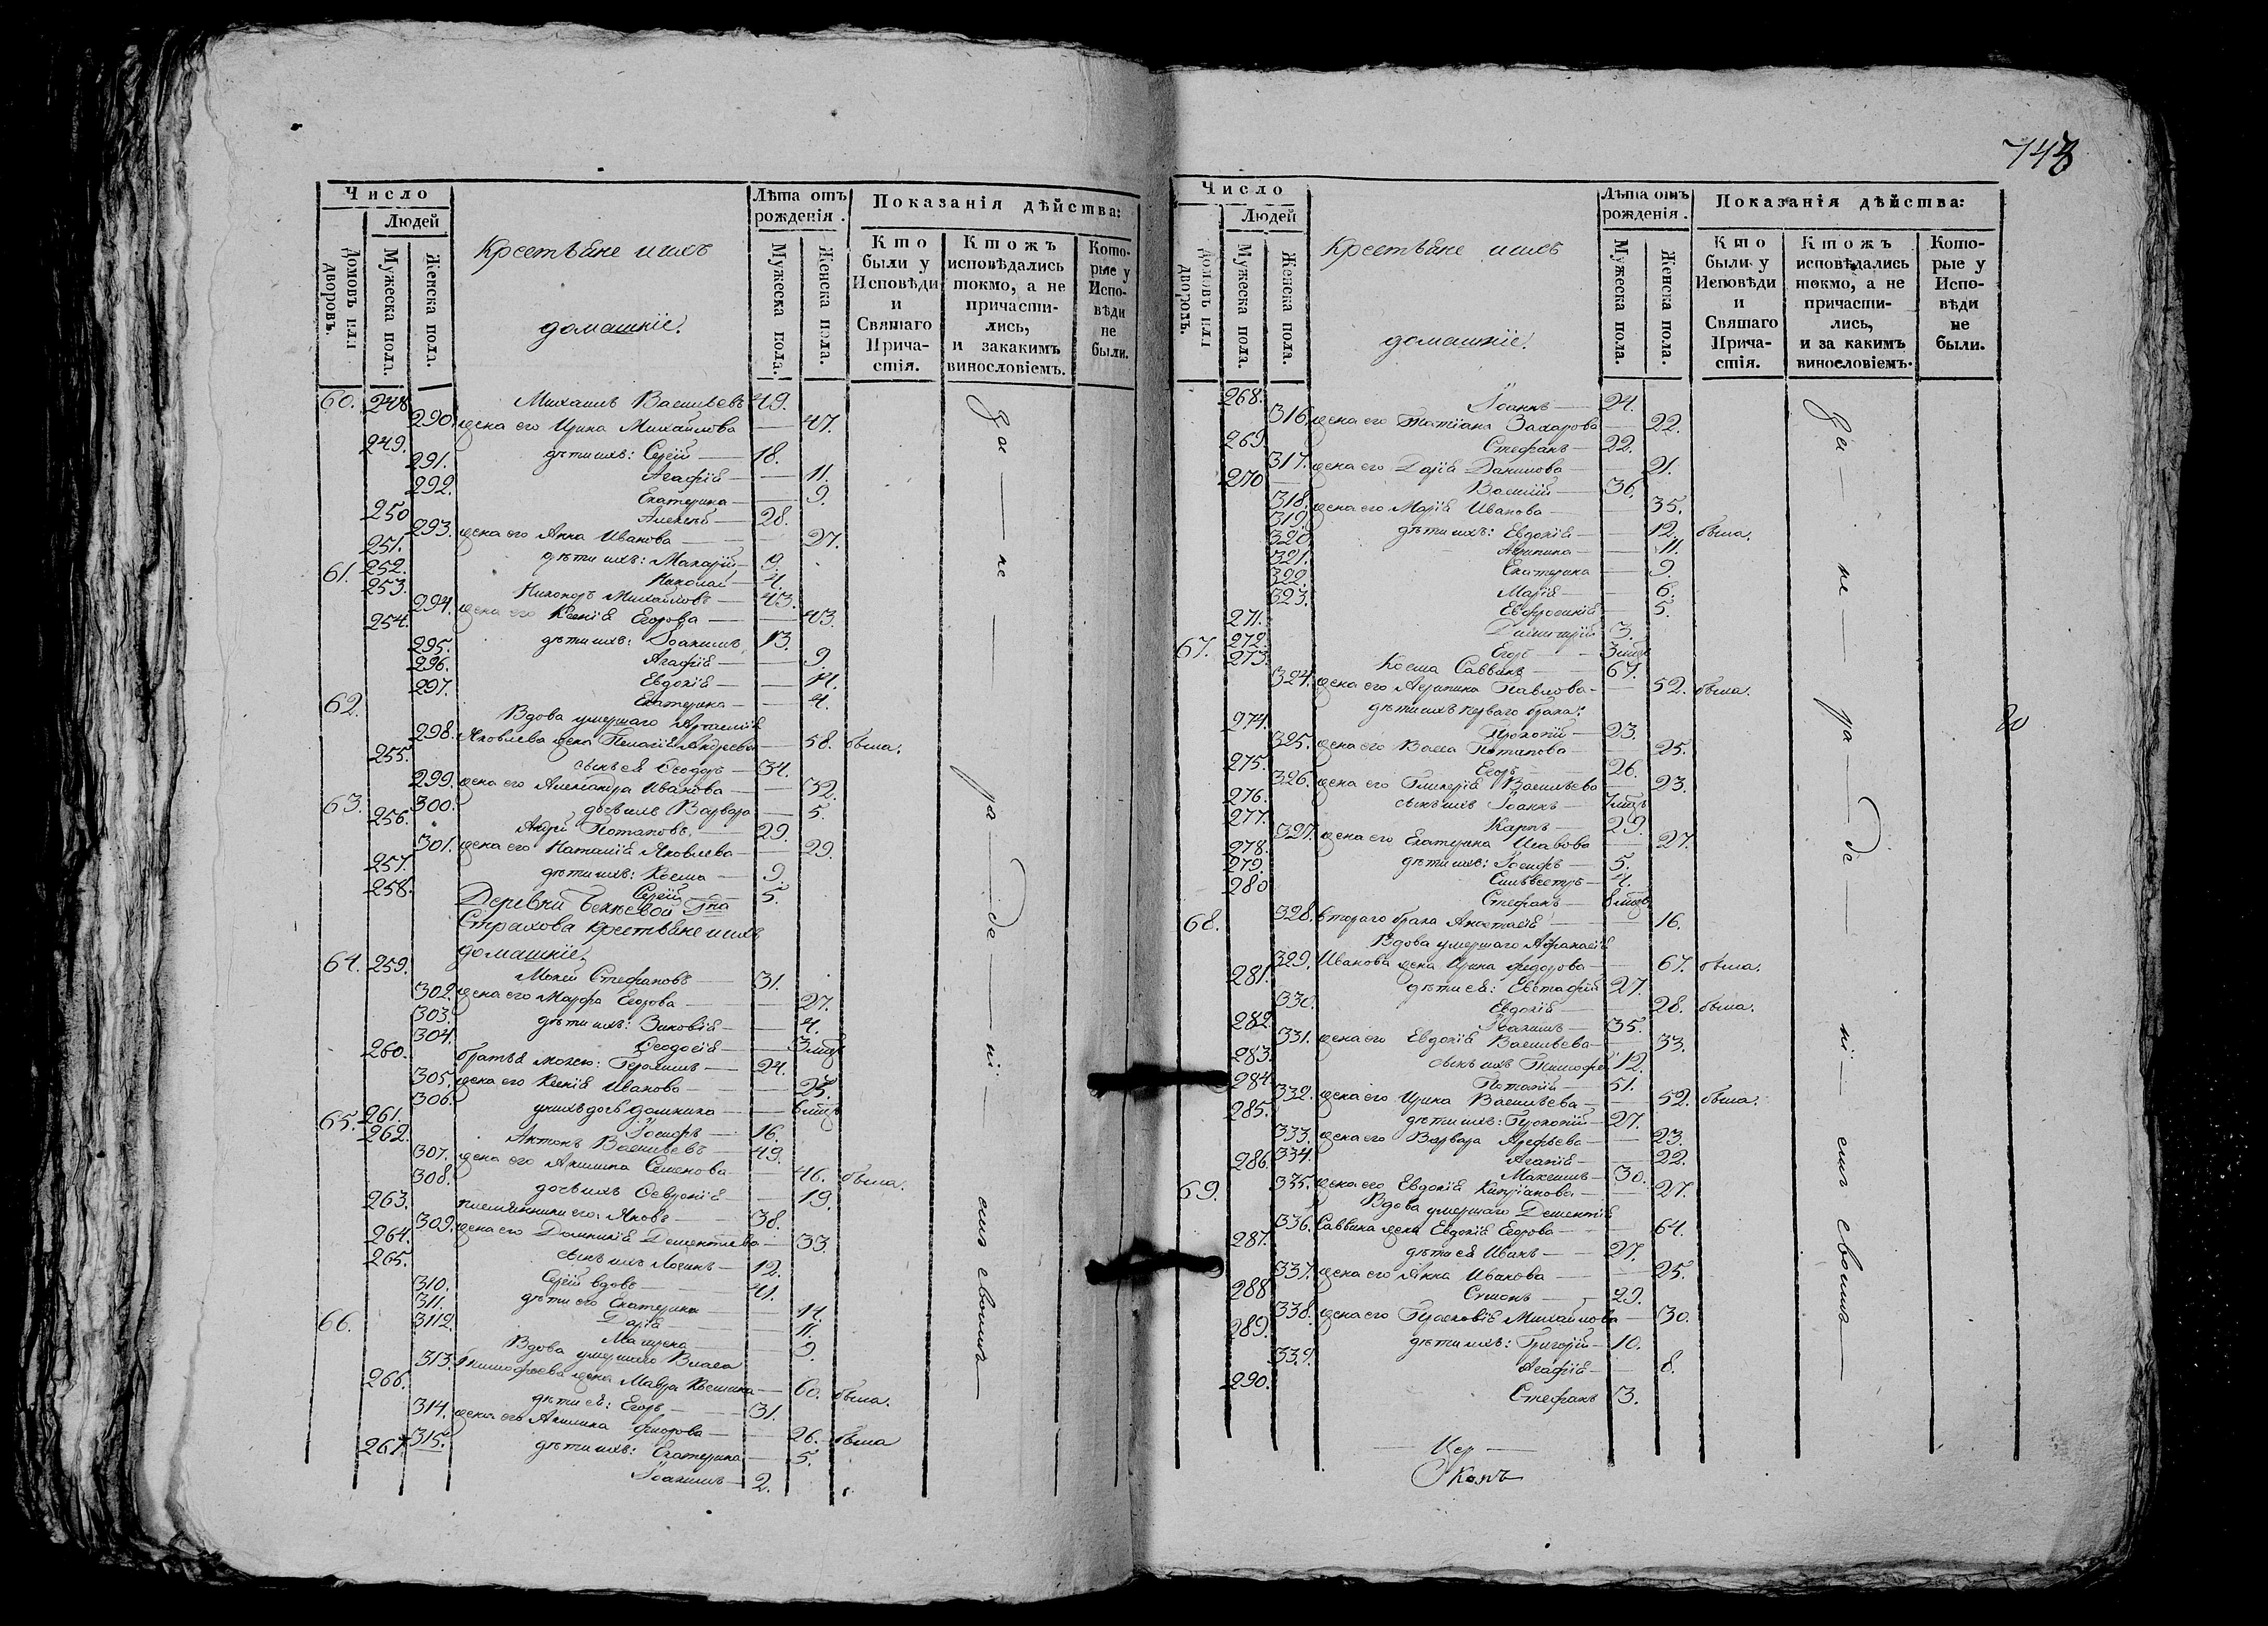 743
Число
Людей
Домовъ или дворовъ.
Мужеска пола.
Женска пола.
Крестьяне и ихъ
домашніе.
Лѣта отъ рожденія.
Мужеска пола.
Женска пола.
Показанія дѣйства:
Кто были у Исповѣди и Святаго Прича-стія.
Ктожъ исповѣдались токмо, а не причасти-лись, и закакимъ винословіемъ.
Кото-рые у Испо-вѣди не были.
60. 248. Михаилъ Васильевъ 49.
290. жена его Ирина Михайлова — 47.
249. дѣти ихъ: Сергій — 18.
291. Агафія — 11.
292. Екатерина — 9.
250. Алексѣй — 28.
293. жена его Анна Иванова — 27.
251. дѣти ихъ: Макарій — 9.
252. Николай — 4.
61. 253. Никаноръ Михайловъ — 43.
294. жена его Ксенія Егорова — 43.
254. дѣти ихъ: Іоакимъ 13.
295. Агафія — 9.
296. Евдокія — 14.
297. Екатерина — 4.
62. Вдова умершаго
298. Яковлева жена Пелагія Андреева — 58. была.
255. сынъ ея Ѳеодоръ — 34.
299. жена его Александра Иванова — 32.
300. дочь ихъ Варвара — 5.
63. 256. Андрей Потаповъ — 29.
301. жена его Наталія Яковлева — 29.
257. дѣти ихъ: Косма — 9.
258. Сергій — 5.
Деревни
Страхова крестьяне и ихъ
домашніе.
64. 259. Мокей Стефановъ — 31.
302. жена его Марфа Егорова — 27.
303. дѣти ихъ: Зиновія — 4.
304. Ѳеодосія — 3 мѣся
260. братья Мокею: Герасимъ — 24.
305. жена его Ксенія Иванова — 25.
306. у нихъ дочь Домника — 6 мѣся
261. Іосифъ — 16.
65. 262. Антонъ Васильевъ — 49.
307. жена его Акилина Семенова — 46. была.
308. дочь ихъ Ѳевронія — 19.
263. племянники его: Яковъ — 38.
309. жена его Домникія Дементьева — 33.
264. сынъ ихъ Логинъ — 12.
265. Сергій вдовъ — 41.
310. дѣти его Екатерина — 14.
311. Дарія — 11.
3112. Матрена — 9.
66. Вдова умершаго Власа
313. Тимофеева жена Мавра Космина — 60. была.
266. дѣти ея: Егоръ — 31.
314. жена его Акилина Федорова — 26. была
315. дѣти ихъ: Екатерина — 5.
267. Іоакимъ — 2.
За — не — ра — де — ні — емъ своимъ —
Число
Людей
Домовъ или дворовъ.
Мужеска пола.
Женска пола.
Крестьяне и ихъ
домашніе.
Лѣта отъ рожденія.
Мужеска пола.
Женска пола.
Показанія дѣйства:
Кто были у Исповѣди и Святаго Прича-стія.
Ктожъ исповѣдались токмо, а не причасти-лись, и за какимъ винословіемъ.
Кото-рые у Испо-вѣди не были.
268. Іоаннъ — 24.
316. жена его Татіана Захарова — 22.
269. Стефанъ — 22.
317. жена его Дарія Данилова — 21.
270. Василій — 36.
318. жена его Марія Иванова — 35.
319. дѣти ихъ: Евдокія — 12. была.
320. Агрипина — 11.
321. Екатерина — 9.
322. Марія — 6.
323. Евфросинія — 5.
271. Димитрій 3.
272. Егоръ — 3 мѣся
67. 273. Косма Саввинъ — 67.
324. жена его Агрипина Павлова — 52. была.
дѣти ихъ перваго брака:
274. Прокопій — 23.
325. жена его Васса Потапова — 25.
275. Егоръ — 26.
326. жена его Гликерія Васильева — 23.
276. сынъ ихъ Іоаннъ — 7 мѣся
277. Карпъ — 29.
327. жена его Екатерина — 27.
278. дѣти ихъ: Іосифъ — 5.
279. Сильвестръ — 4.
280. Стефанъ — 8 мѣся
328. втораго брака Анастасія — 16.
68. Вдова умершаго Афанасія
329. Иванова жена Ирина Федорова — 67. была.
281. дѣти ея: Евстафій 27.
330. Евдокія — 28. была.
282. Іоакимъ — 35.
331. жена его Евдокія Васильева — 33.
283. сынъ ихъ Тимофей 12.
284. Потапій — 51.
332. жена его Ирина Васильева — 52. была.
285. дѣти ихъ: Прокопій — 27.
333. жена его Варвара Арефьева — 23.
334. Агапія — 22.
286. Максимъ — 30.
335. жена его Евдокія Кипріанова — 27.
69. Вдова умершаго Дементія
336. Саввина жена Евдокія Егорова — 64.
287. дѣти ея Иванъ — 27.
337. жена его Анна Иванова — 25.
288. Симонъ — 29.
338. жена его Прасковія Михайлова — 30.
289. дѣти ихъ: Григорій — 10.
339. Агафія — 8.
290. Стефанъ 3.
За — не — ра — де — ні — емъ своимъ —